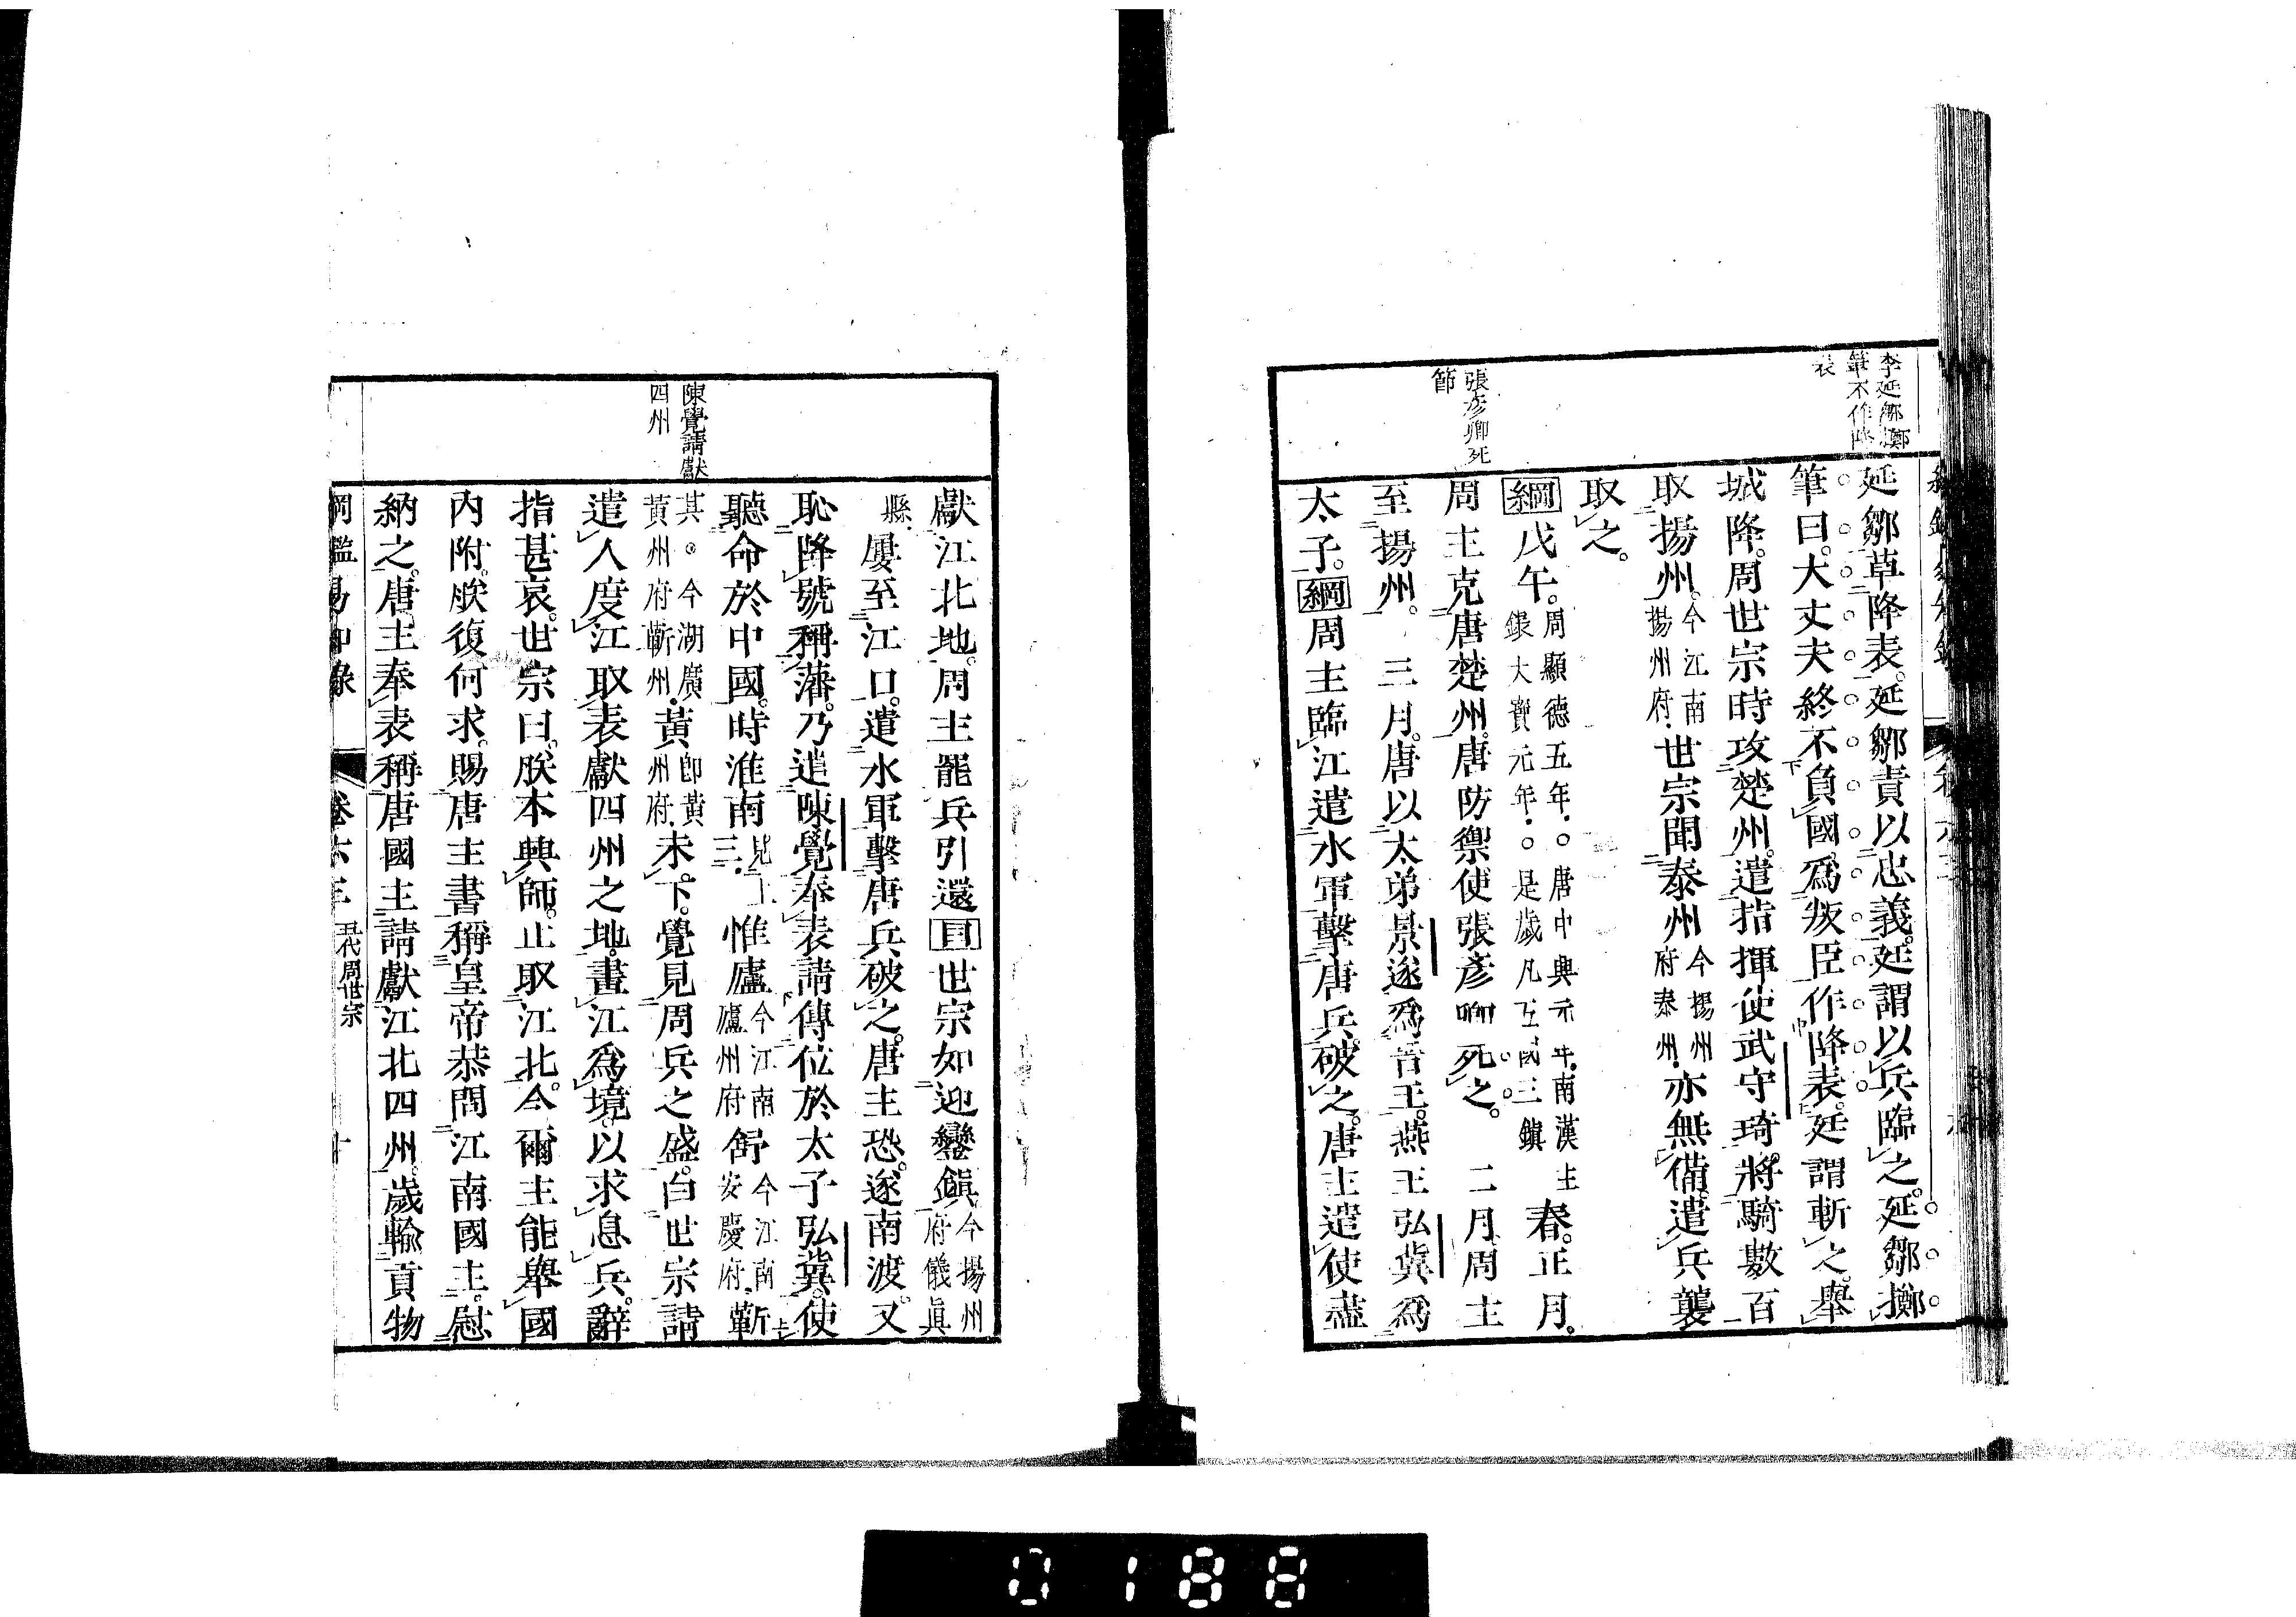 李延鄒擲
筆不作降
表
張彥卿死
節
延鄒草降表。延鄒責以忠義。延謂以兵臨之。延鄒擲
筆曰。大丈夫終不負國。爲叛臣作降表。延謂斬之。舉
城降。周世宗時攻楚州。遣指揮使武守琦。將騎數百
取揚州。今江南揚州府。世宗聞泰州今揚州府泰州。亦無備。遣兵襲
取之。
綱戊午。周顯德五年。○唐中興元年。南漢主鋹大寶元年。○是歲凡五國三鎮春。正月。
周主克唐楚州。唐防禦使張彥卿死之。 二月。周主
至揚州。 三月。唐以太弟景遂爲晉王。燕王弘冀爲
太子。綱周主臨江遣水軍擊唐兵。破之。唐主遣使盡
陳覺請獻
四州
獻江北地。周主罷兵引還目世宗如迎鑾鎮今揚州府儀眞
縣。屢至江口。遣水軍擊唐兵破之。唐主恐。遂南渡。又
恥降號稱藩。乃遣陳覺奉表請傳位於太子弘冀。使
聽命於中國。時淮南見上三。惟廬今江南廬州府舒今江南安慶府。蘄
其。今湖廣黃州府蘄州。黃卽黃州府。未下。覺見周兵之盛。白世宗請
遣人度江取表獻四州之地。畫江爲境。以求息兵。辭
指甚哀。世宗曰。朕本興師。止取江北。今爾主能舉國
內附。朕復何求。賜唐主書稱皇帝恭問江南國主。慰
納之。唐主奉表稱唐國主請獻江北四州。歲輸貢物
綱鑑易知錄 卷六三 五代周世宗 十
0188